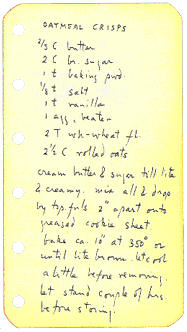 OATMEAL CRISPS
2/3 C butter
2 C br. sugar
1 t baking pwd.
1/8 t salt
1 t vanilla
1 egg, beaten
2 T wh-wheat fl.
2 1/2 C rolled oats
cream butter & sugar till lite
& creamy. mix all & drop
by tsp. fuls 2" apart onto
greased cookie sheet.
bake ca. 10" at 350° or
until lite brown. let cool
a little before removing.
let stand couple of hrs.
before storing!